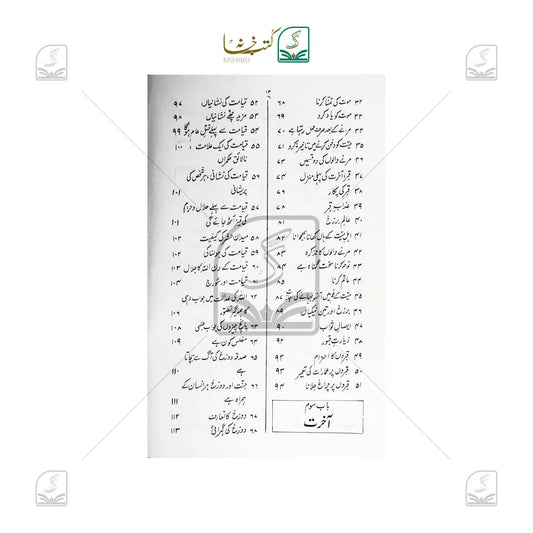 کتب خانہ
۱۳
۳۲ موت کی تمنا کرنا ۶۸
۳۳ موت کو یاد کرو ۶۹
۳۴ مرنے کے بعد صرف عمل رہتا ہے ۷۰
۳۵ میّت کو دفن کرنے میں تاخیر نہ کرو ۷۱
۳۶ مرنے والوں کی دو قسمیں ۷۳
۳۷ قبر، آخرت کی پہلی منزل ۷۴
۳۸ قبر کی پکار ۷۶
۳۹ عذاب قبر ۷۸
۴۰ عالم برزخ ۸۱
۴۱ اہل میّت کے ہاں کھانا بھجوانا ۸۲
۴۲ مرنے والوں کا تذکرہ ۸۳
۴۳ نوحہ کرنا سخت گناہ ہے ۸۴
۴۴ ماتم کرنا ۸۵
۴۵ میّت کے غم میں آنسو بہانے کی ۸۷
۴۶ برزخ اور تین نیکیاں ۸۹
۴۷ ایصال ثواب ۹۰
۴۸ زیارت قبور ۹۲
۴۹ قبروں کا احترام ۹۳
۵۰ قبروں پر عمارات کی تعمیر ۹۳
۵۱ قبروں پر چراغ جلانا ۹۴
باب سوم
آخرت
۵۲ قیامت کی نشانیاں ۹۷
۵۳ مزید چھے نشانیاں ۹۸
۵۴ قیامت سے پہلے قتل عام ہوگا ۹۹
۵۵ قیامت کی ایک علامت، ۱۰۰
نالائق حکمران
۵۶ قیامت کی نشانی، ہر شخص کی
پریشانی ۱۰۱
۵۷ قیامت سے پہلے حلال و حرام
کی تمیز اُٹھ جائے گی ۱۰۱
۵۸ میدان حشر کی کیفیت ۱۰۲
۵۹ قیامت کی ہولناکی ۱۰۳
۶۰ قیامت کے دن اللہ کا جلال ۱۰۳
۶۱ قیامت اور سورج ۱۰۴
۶۲ اللہ کی عدالت میں جواب دہی
۶۳ پانچ چیزوں کی جواب طلبی ۱۰۸
۶۴ مفلس کون ہے ۱۰۹
۶۵ صدقہ دوزخ کی آگ سے بچاتا
ہے ۱۱۰
۶۶ جنت اور دوزخ ہر انسان کے
ہمراہ ہے ۱۱۱
۶۷ دوزخ کا تعارف ۱۱۲
۶۸ دوزخ کی گہرائی ۱۱۳